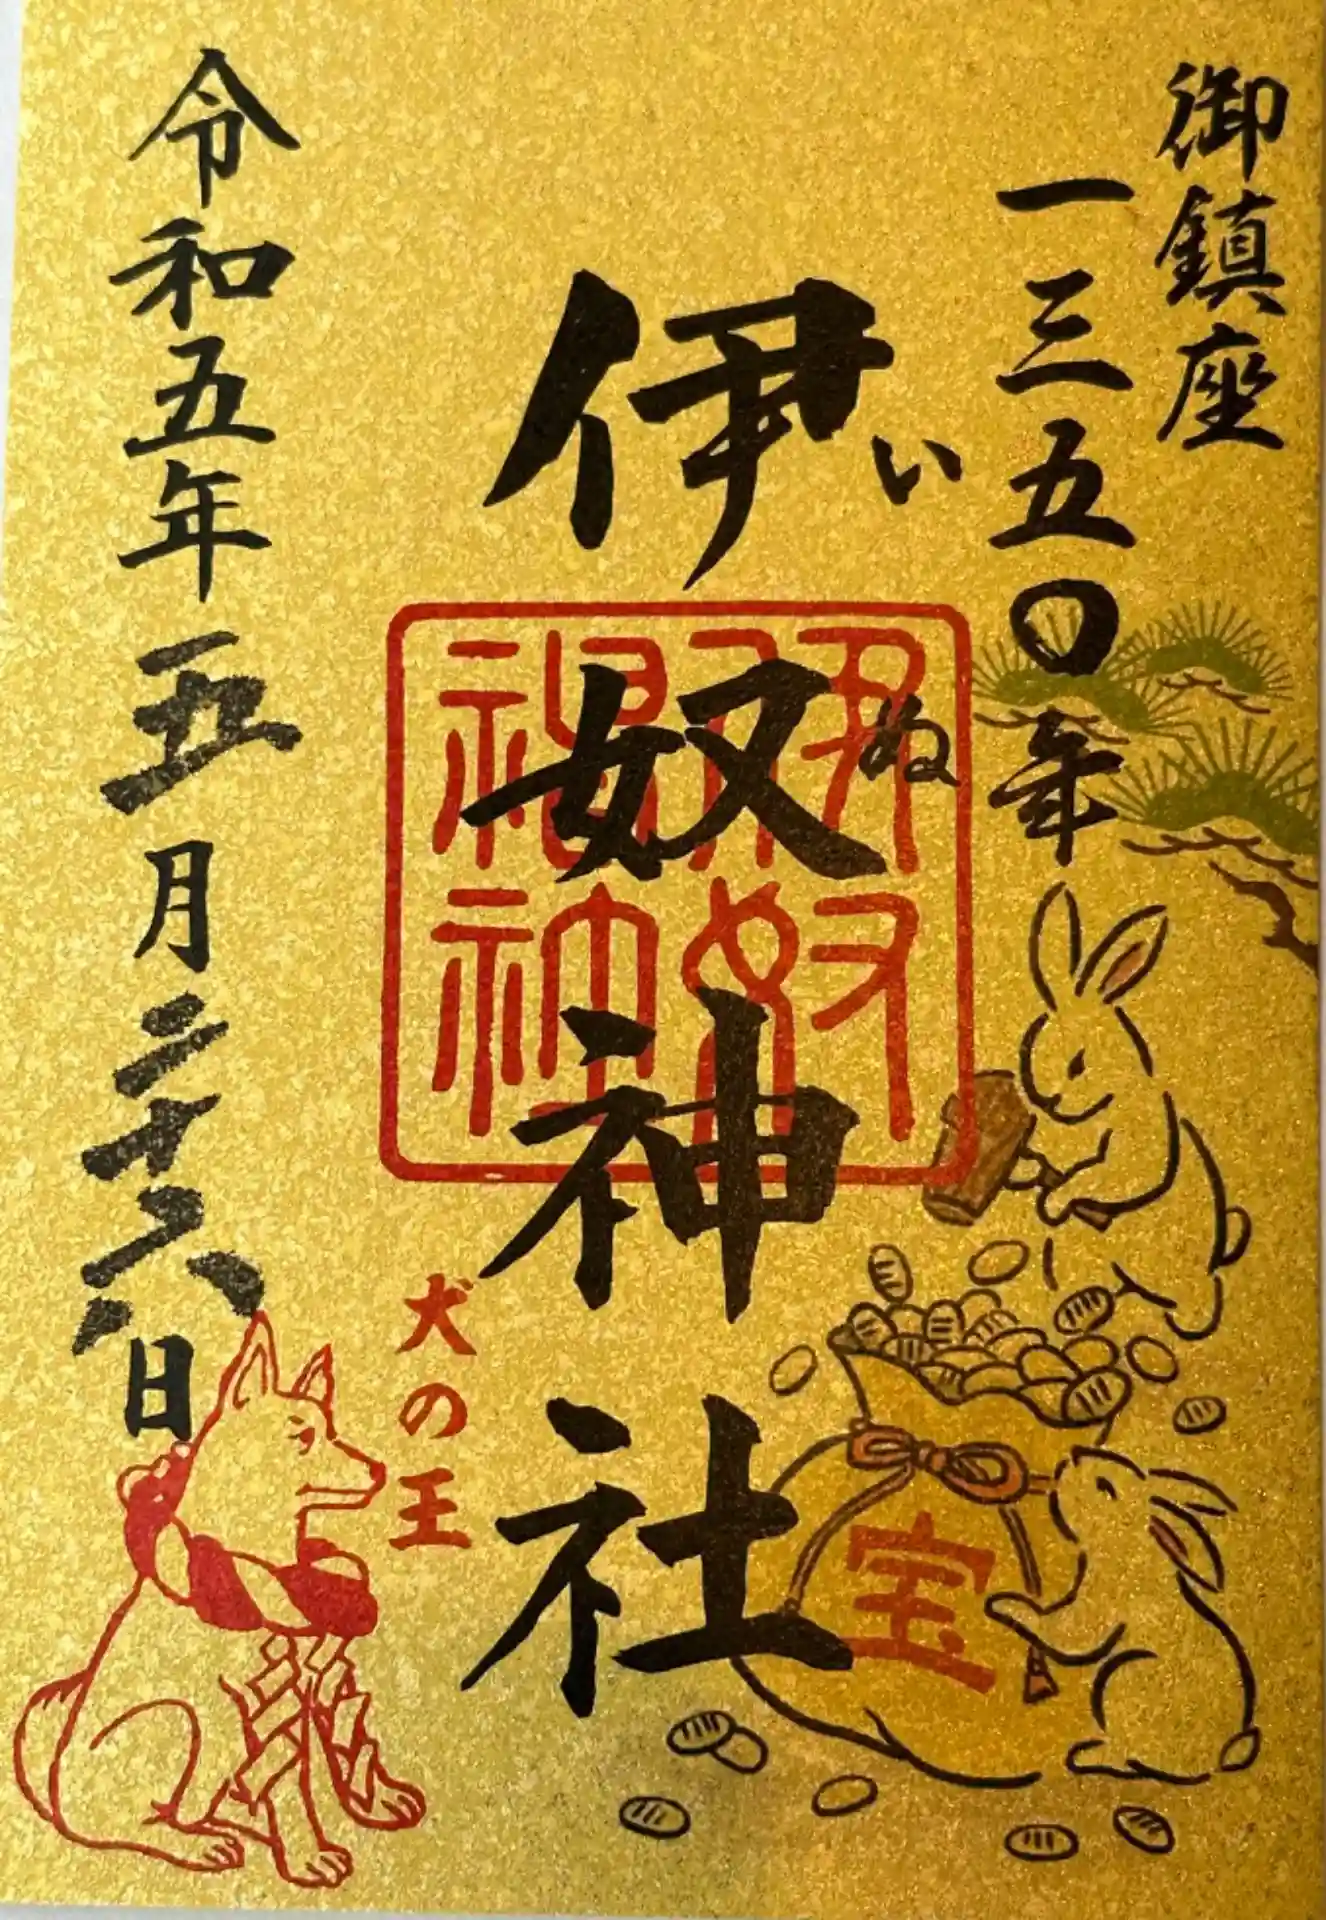 御鎮座
一三五〇年
伊奴神社
いぬ
伊奴神社
犬の王
宝
令和五年五月二十六日